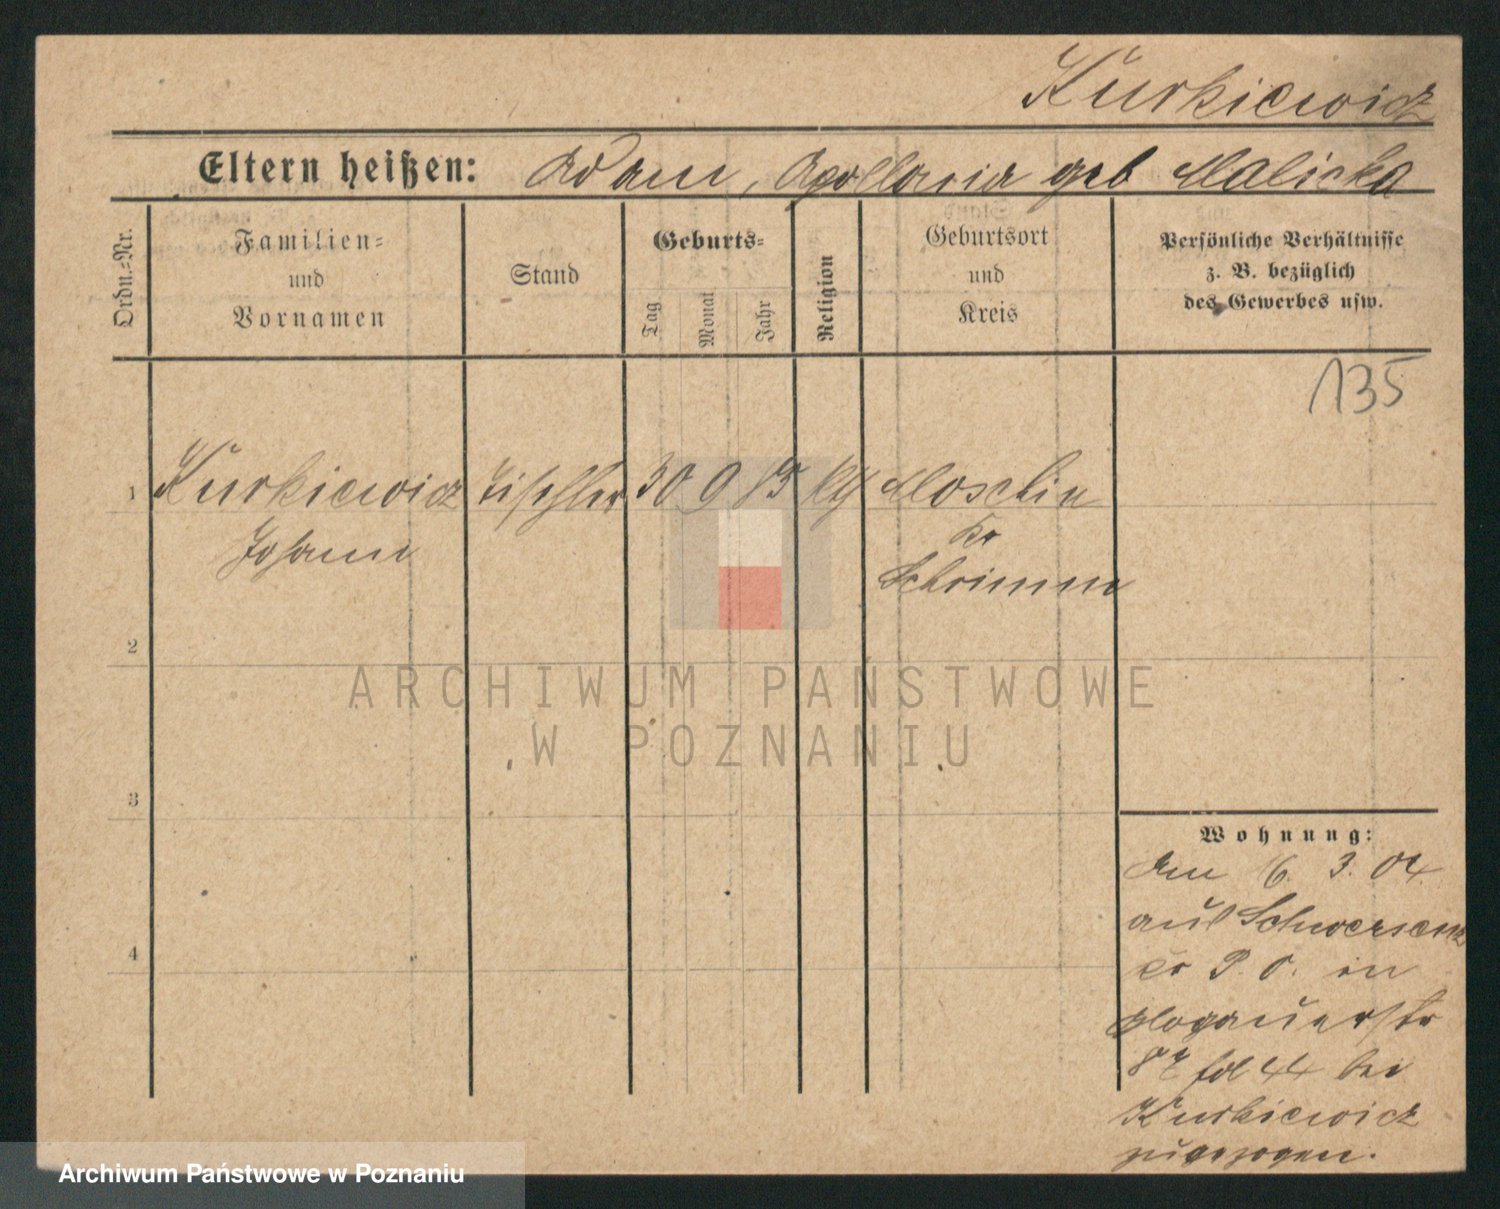 Kurkiewicz
Eltern heißen: Adam, Apollonia geb Malicka
Ordn.-Nr.
Familien-
und
Vornamen
Stand
Geburts-
Tag
Monat
Jahr
Religion
Geburtsort
und
Kreis
Persönliche Verhältnisse
z. B. bezüglich
des Gewerbes usw.
135
1 Kurkiewicz Tischler 30 9 85 kth Moschin
Johann Kr
Schrimm
2
3
4
Wohnung:
Am 16. 3. 04.
aus Schwersenz
Kr P. O. in
Glogauerstr
87 bei
Kurkiewicz
zugezogen.
ARCHIWUM PAŃSTWOWE
W POZNANIU
Archiwum Państwowe w Poznaniu